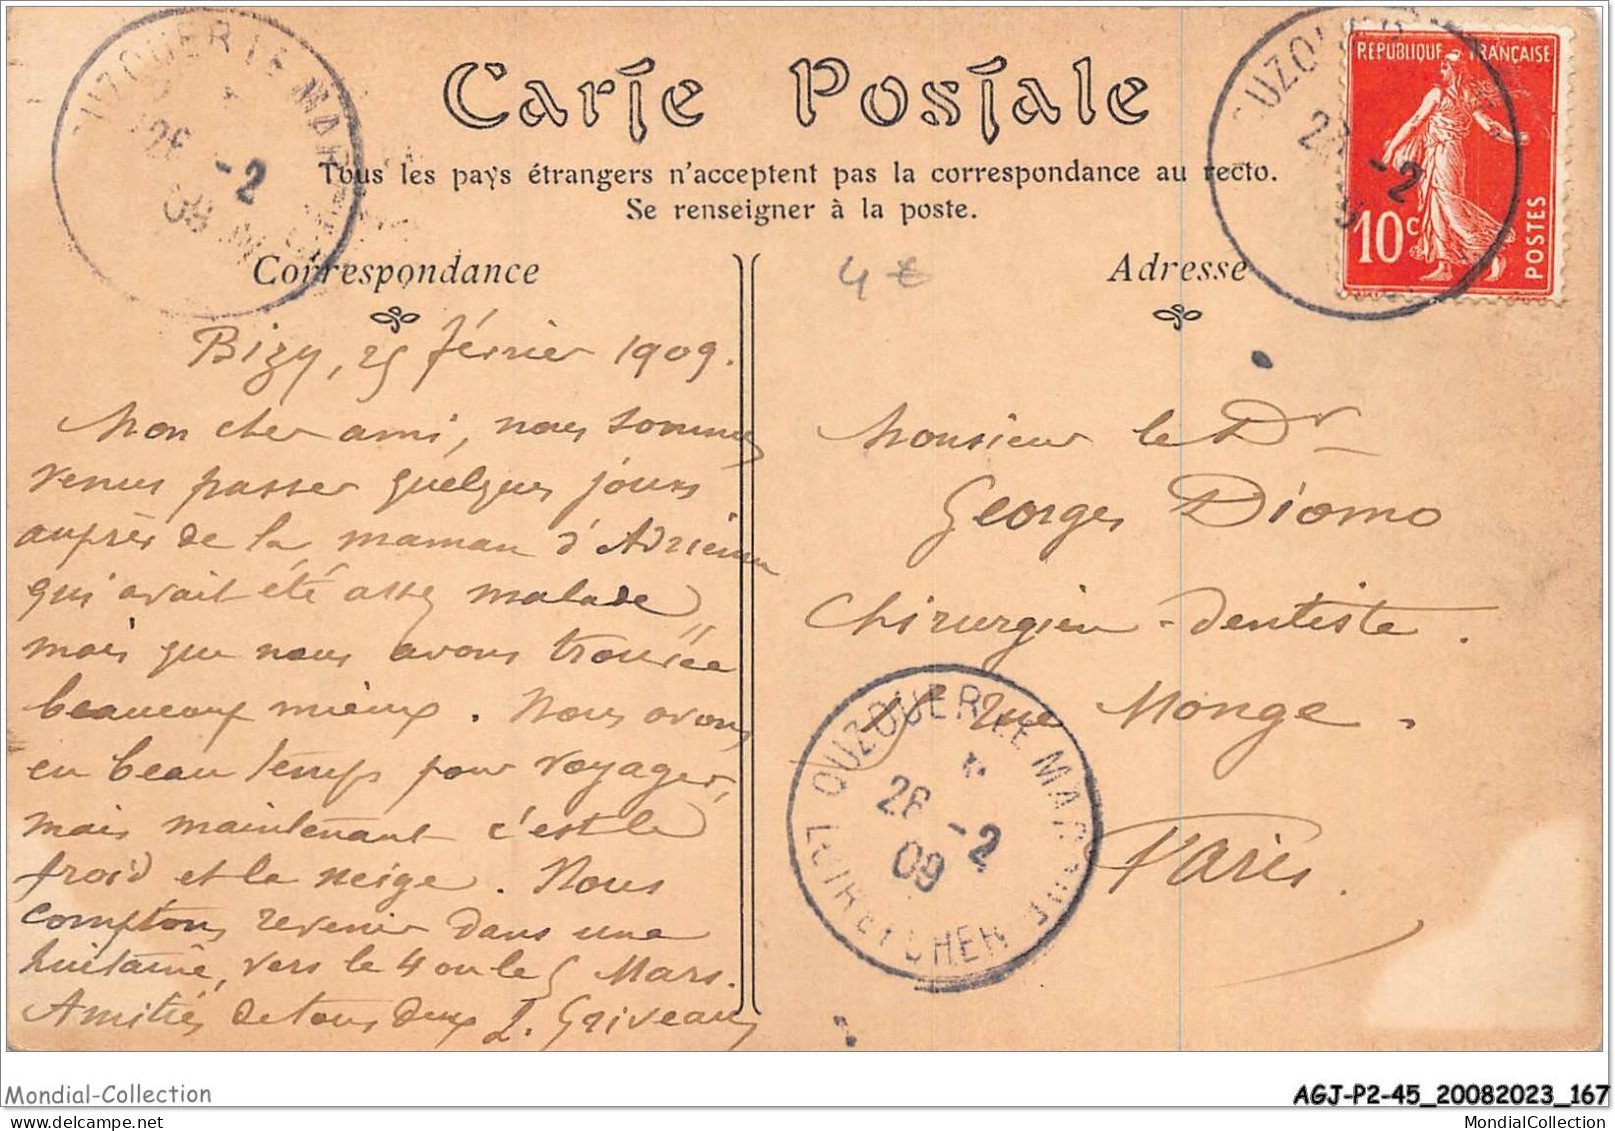 Carte Postale
Tous les pays étrangers n'acceptent pas la correspondance au recto.
Se renseigner à la poste.
Correspondance
Adresse
4 €
RÉPUBLIQUE FRANÇAISE
10c
POSTES
OUZOUER LE MAR
26 -2
09
Bizy, 25 février 1909.
Mon cher ami, nous sommes
venus passer quelques jours
auprès de la maman d'Adrienne
qui avait été assez malade,
mais que nous avons trouvée
beaucoup mieux. Nous avons
eu beau temps pour voyager,
mais maintenant c'est le
froid et la neige. Nous
comptons revenir dans une
huitaine, vers le 4 ou le 5 Mars.
Amitiés de tous deux L. Griveau
Monsieur le Dr
Georges Diomo
Chirurgien-dentiste.
rue Monge.
Paris.
OUZOUER LE MARCHE
26 -2
09
LOIR ET CHER
Mondial-Collection
AGJ-P2-45_20082023_167
MondialCollection